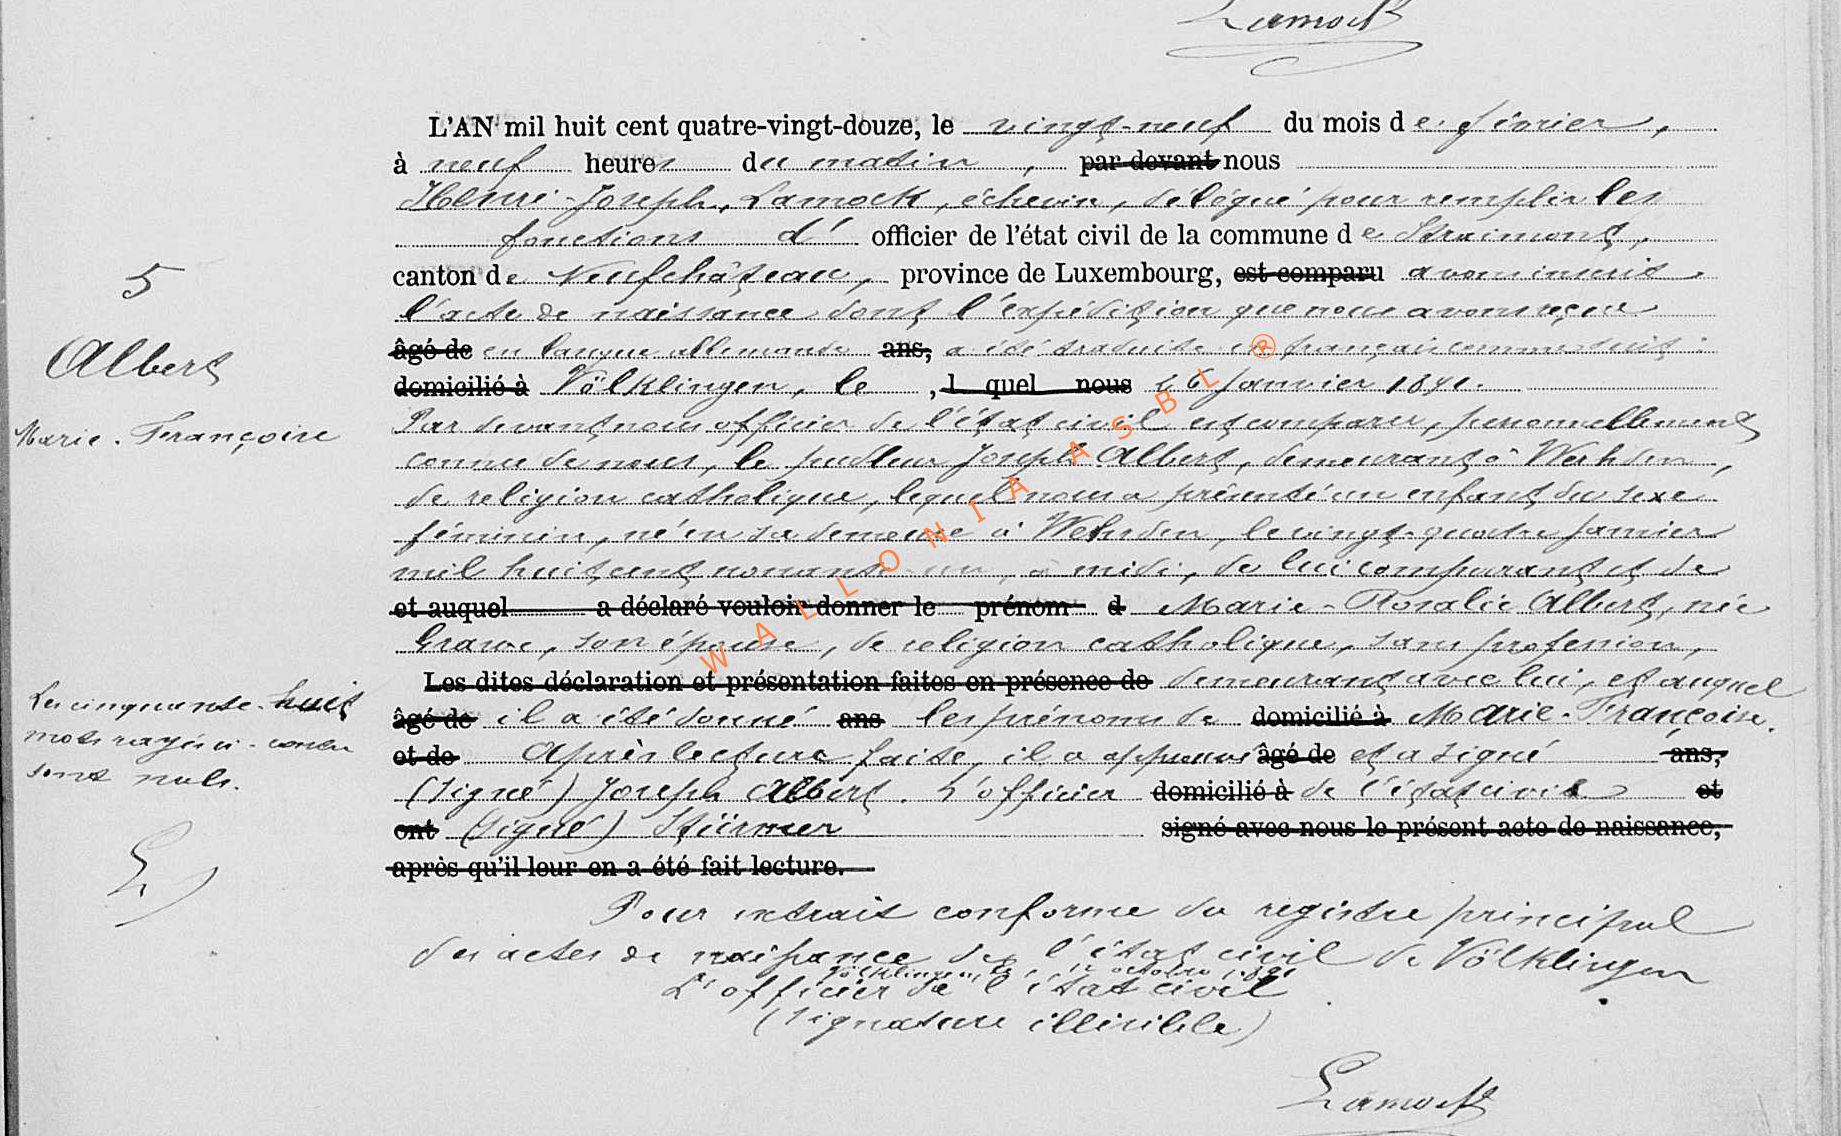 Lamock
L'AN mil huit cent quatre-vingt-douze, le vingt-neuf du mois de février,
à neuf heures du matin, par devant nous
Henri-Joseph, Lamock, échevin, délégué pour remplir les
fonctions d' officier de l'état civil de la commune de Straimont,
5
canton de Neufchâteau, province de Luxembourg, est comparu avons inscrit
l'acte de naissance dont l'expédition que nous avons reçue
Albert
âgé de en langue allemande ans, a été traduite en français comme suit:
domicilié à Völklingen, le , l quel nous 26 janvier 1891.
Marie-Françoise
Par devant nous officier de l'état civil est comparu, personnellement
connu de nous, le pudleur Joseph Albert, demeurant à Wehrden,
de religion catholique, lequel nous a présenté un enfant du sexe
féminin, né en sa demeure à Wehrden, le vingt-quatre janvier
mil huit cent nonante-un, à midi, de lui comparant et de
et auquel a déclaré vouloir donner le prénom d Marie-Rosalie Albert, née
son épouse, de religion catholique, sans profession,
Les dites déclaration et présentation faites en présence de demeurant avec lui, et auquel
Les cinquante-huit
mots rayés ci-contre
sont nuls.
âgé de il a été donné ans les prénoms de domicilié à Marie-Françoise.
et de Après lecture faite, il a approuvé âgé de et a signé ans,
(signé) Joseph Albert. L'officier domicilié à de l'état civil et
ont (signé) Stürmer signé avec nous le présent acte de naissance,
après qu'il leur en a été fait lecture.
L
Pour extrait conforme du registre principal
des actes de naissance de l'état civil de Völklingen
Völklingen, le octobre 1891
L'officier de l'état civil
(signature illisible)
Lamock
WALLONIA ASBL ®